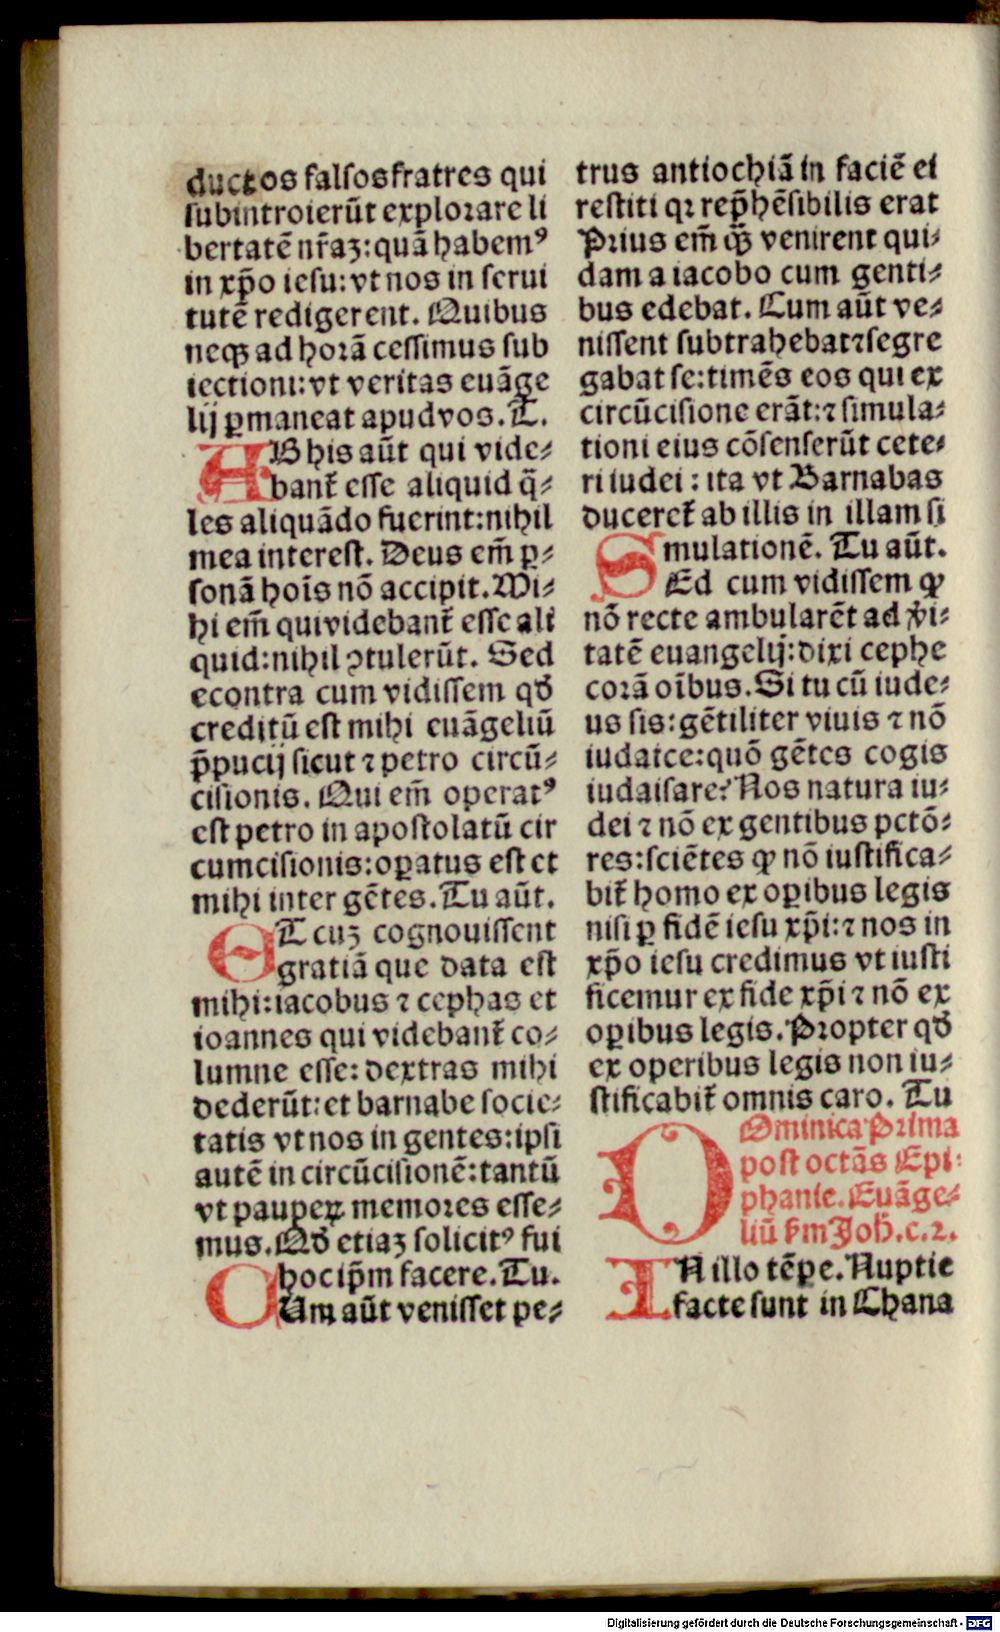 ductos falsos fratres qui
subintroierūt explorare li
bertatē nr̄aꝫ: quā habemꝰ
in xp̄o iesu: vt nos in serui
tutē redigerent. Quibus
neqꝫ ad horā cessimus sub
iectioni: vt veritas euāge
lij ꝑmaneat apud vos. T.
AB his aūt qui vide⸗
bant̄ esse aliquid q̄⸗
les aliquādo fuerint: nihil
mea interest. Deus em̄ ꝑ⸗
sonā hoīs nō accipit. Mi⸗
hi em̄ qui videbant̄ esse ali
quid: nihil ↄtulerūt. Sed
econtra cum vidissem qđ
creditū est mihi euāgeliū
p̄pucij sicut ⁊ petro circū⸗
cisionis. Qui em̄ operatꝰ
est petro in apostolatū cir
cumcisionis: oꝑatus est et
mihi inter gētes. Tu aūt.
ET cuꝫ cognouissent
gratiā que data est
mihi: iacobus ⁊ cephas et
ioannes qui videbant̄ co⸗
lumne esse: dextras mihi
dederūt: et barnabe socie⸗
tatis vt nos in gentes: ipsi
autē in circūcisionē: tantū
vt pauꝑeꝝ memores esse⸗
mus. Qđ etiaꝫ solicitꝰ fui
hoc ip̄m facere. Tu.
CUm aūt venisset pe⸗
trus antiochiā in faciē ei
restiti qꝛ rep̄hēsibilis erat
Prius em̄ qꝫ̄ venirent qui⸗
dam a iacobo cum genti⸗
bus edebat. Cum aūt ve⸗
nissent subtrahebat ⁊ segre
gabat se: timēs eos qui ex
circūcisione erāt: ⁊ simula⸗
tioni eius cōsenserūt cete⸗
ri iudei: ita vt Barnabas
duceret̄ ab illis in illam si
mulationē. Tu aūt.
SEd cum vidissem ꝙ
nō recte ambularēt ad v̄i⸗
tatē euangelij: dixi cephe
corā oībus. Si tu cū iude⸗
us sis: gētiliter viuis ⁊ nō
iudaice: quō gētes cogis
iudaisare? Nos natura iu⸗
dei ⁊ nō ex gentibus pctō⸗
res: sciētes ꝙ nō iustifica⸗
bit̄ homo ex oꝑibus legis
nisi ꝑ fidē iesu xp̄i: ⁊ nos in
xp̄o iesu credimus vt iusti
ficemur ex fide xp̄i ⁊ nō ex
oꝑibus legis. Propter qđ
ex operibus legis non iu⸗
stificabit̄ omnis caro. Tu
DOminica Prima
post octāś Epi⸗
phanie. Euāge⸗
liū ẜm Joh̄. c. 2.
IN illo tēꝑe. Nuptie
facte sunt in Chana
Digitalisierung gefördert durch die Deutsche Forschungsgemeinschaft - DFG